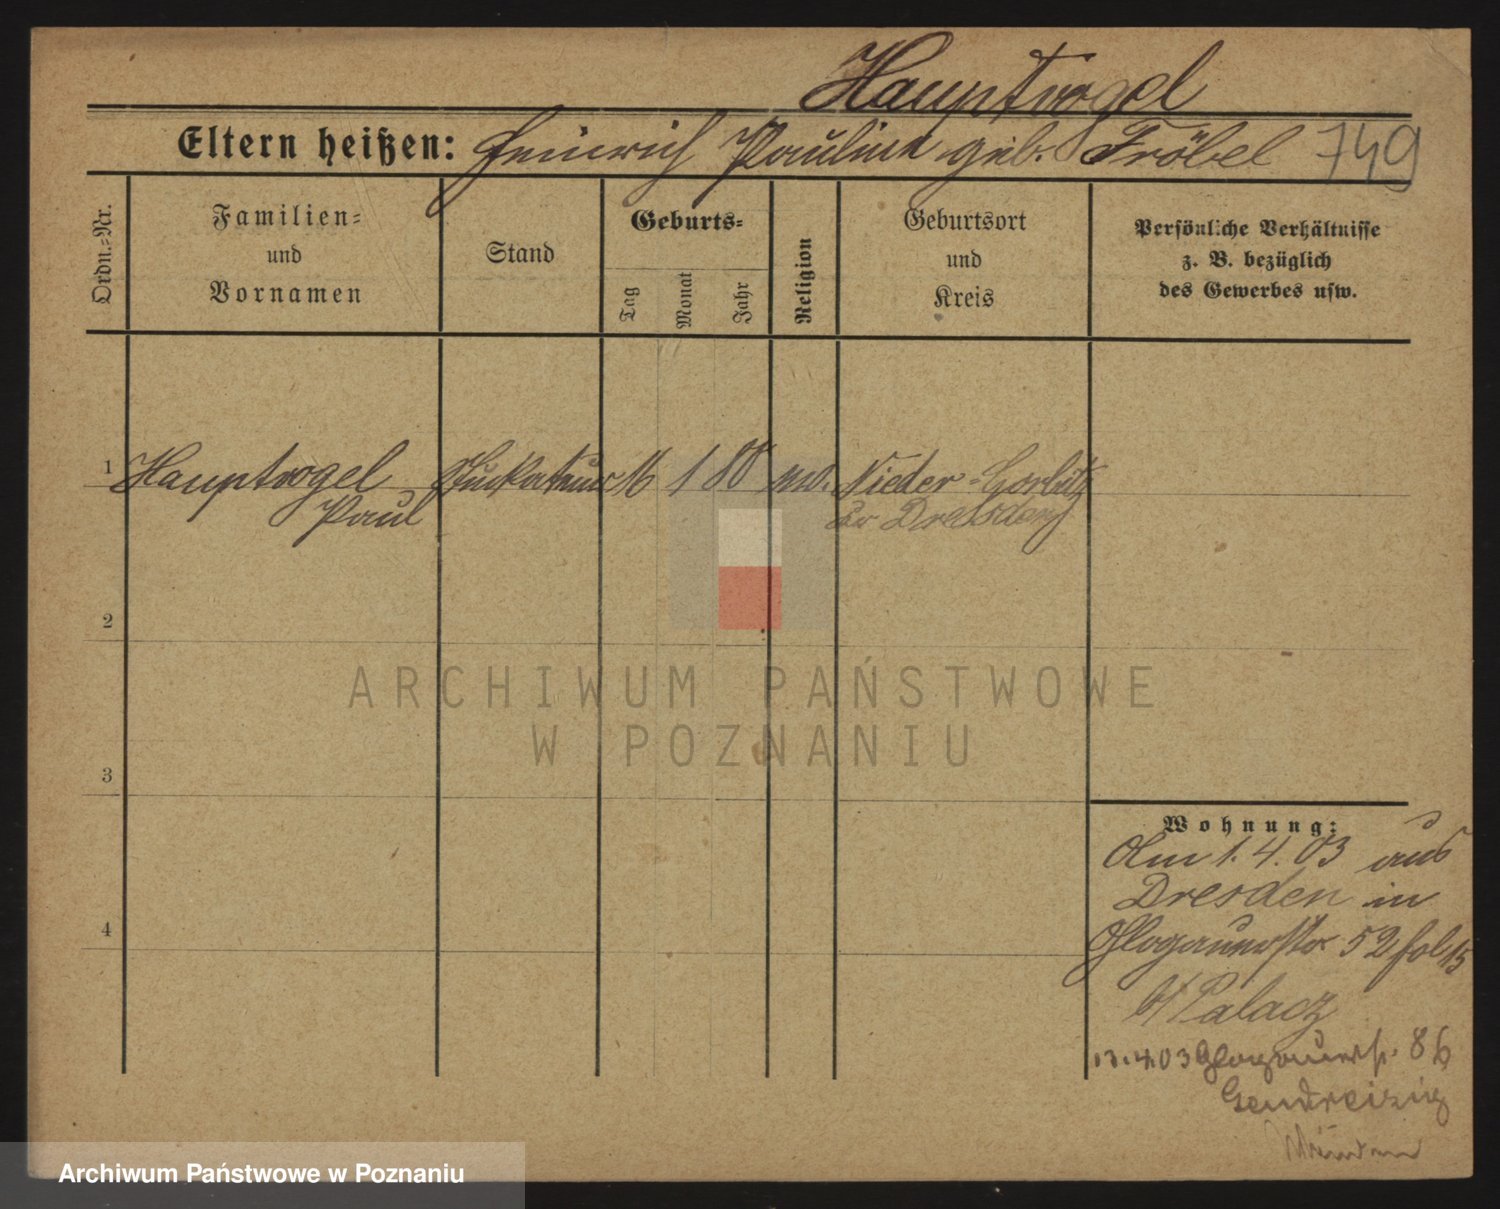 Hauptvogel
Eltern heißen: Heinrich Pauline geb. Fröbel 749
Ordn.=Nr.
Familien=
und
Vornamen
Stand
Geburts=
Tag
Monat
Jahr
Religion
Geburtsort
und
Kreis
Persönliche Verhältnisse
z. B. bezüglich
des Gewerbes usw.
1 Hauptvogel Stuckateur 16 1 80 Nieder-Gorbitz
Paul Dresden
2
3
4
Wohnung:
Am 1. 4. 03 aus
Dresden in
Glogauerstr 52 fol 15
b/ Palacz
4 03 Glogauerstr. 86
ARCHIWUM PAŃSTWOWE
W POZNANIU
Archiwum Państwowe w Poznaniu